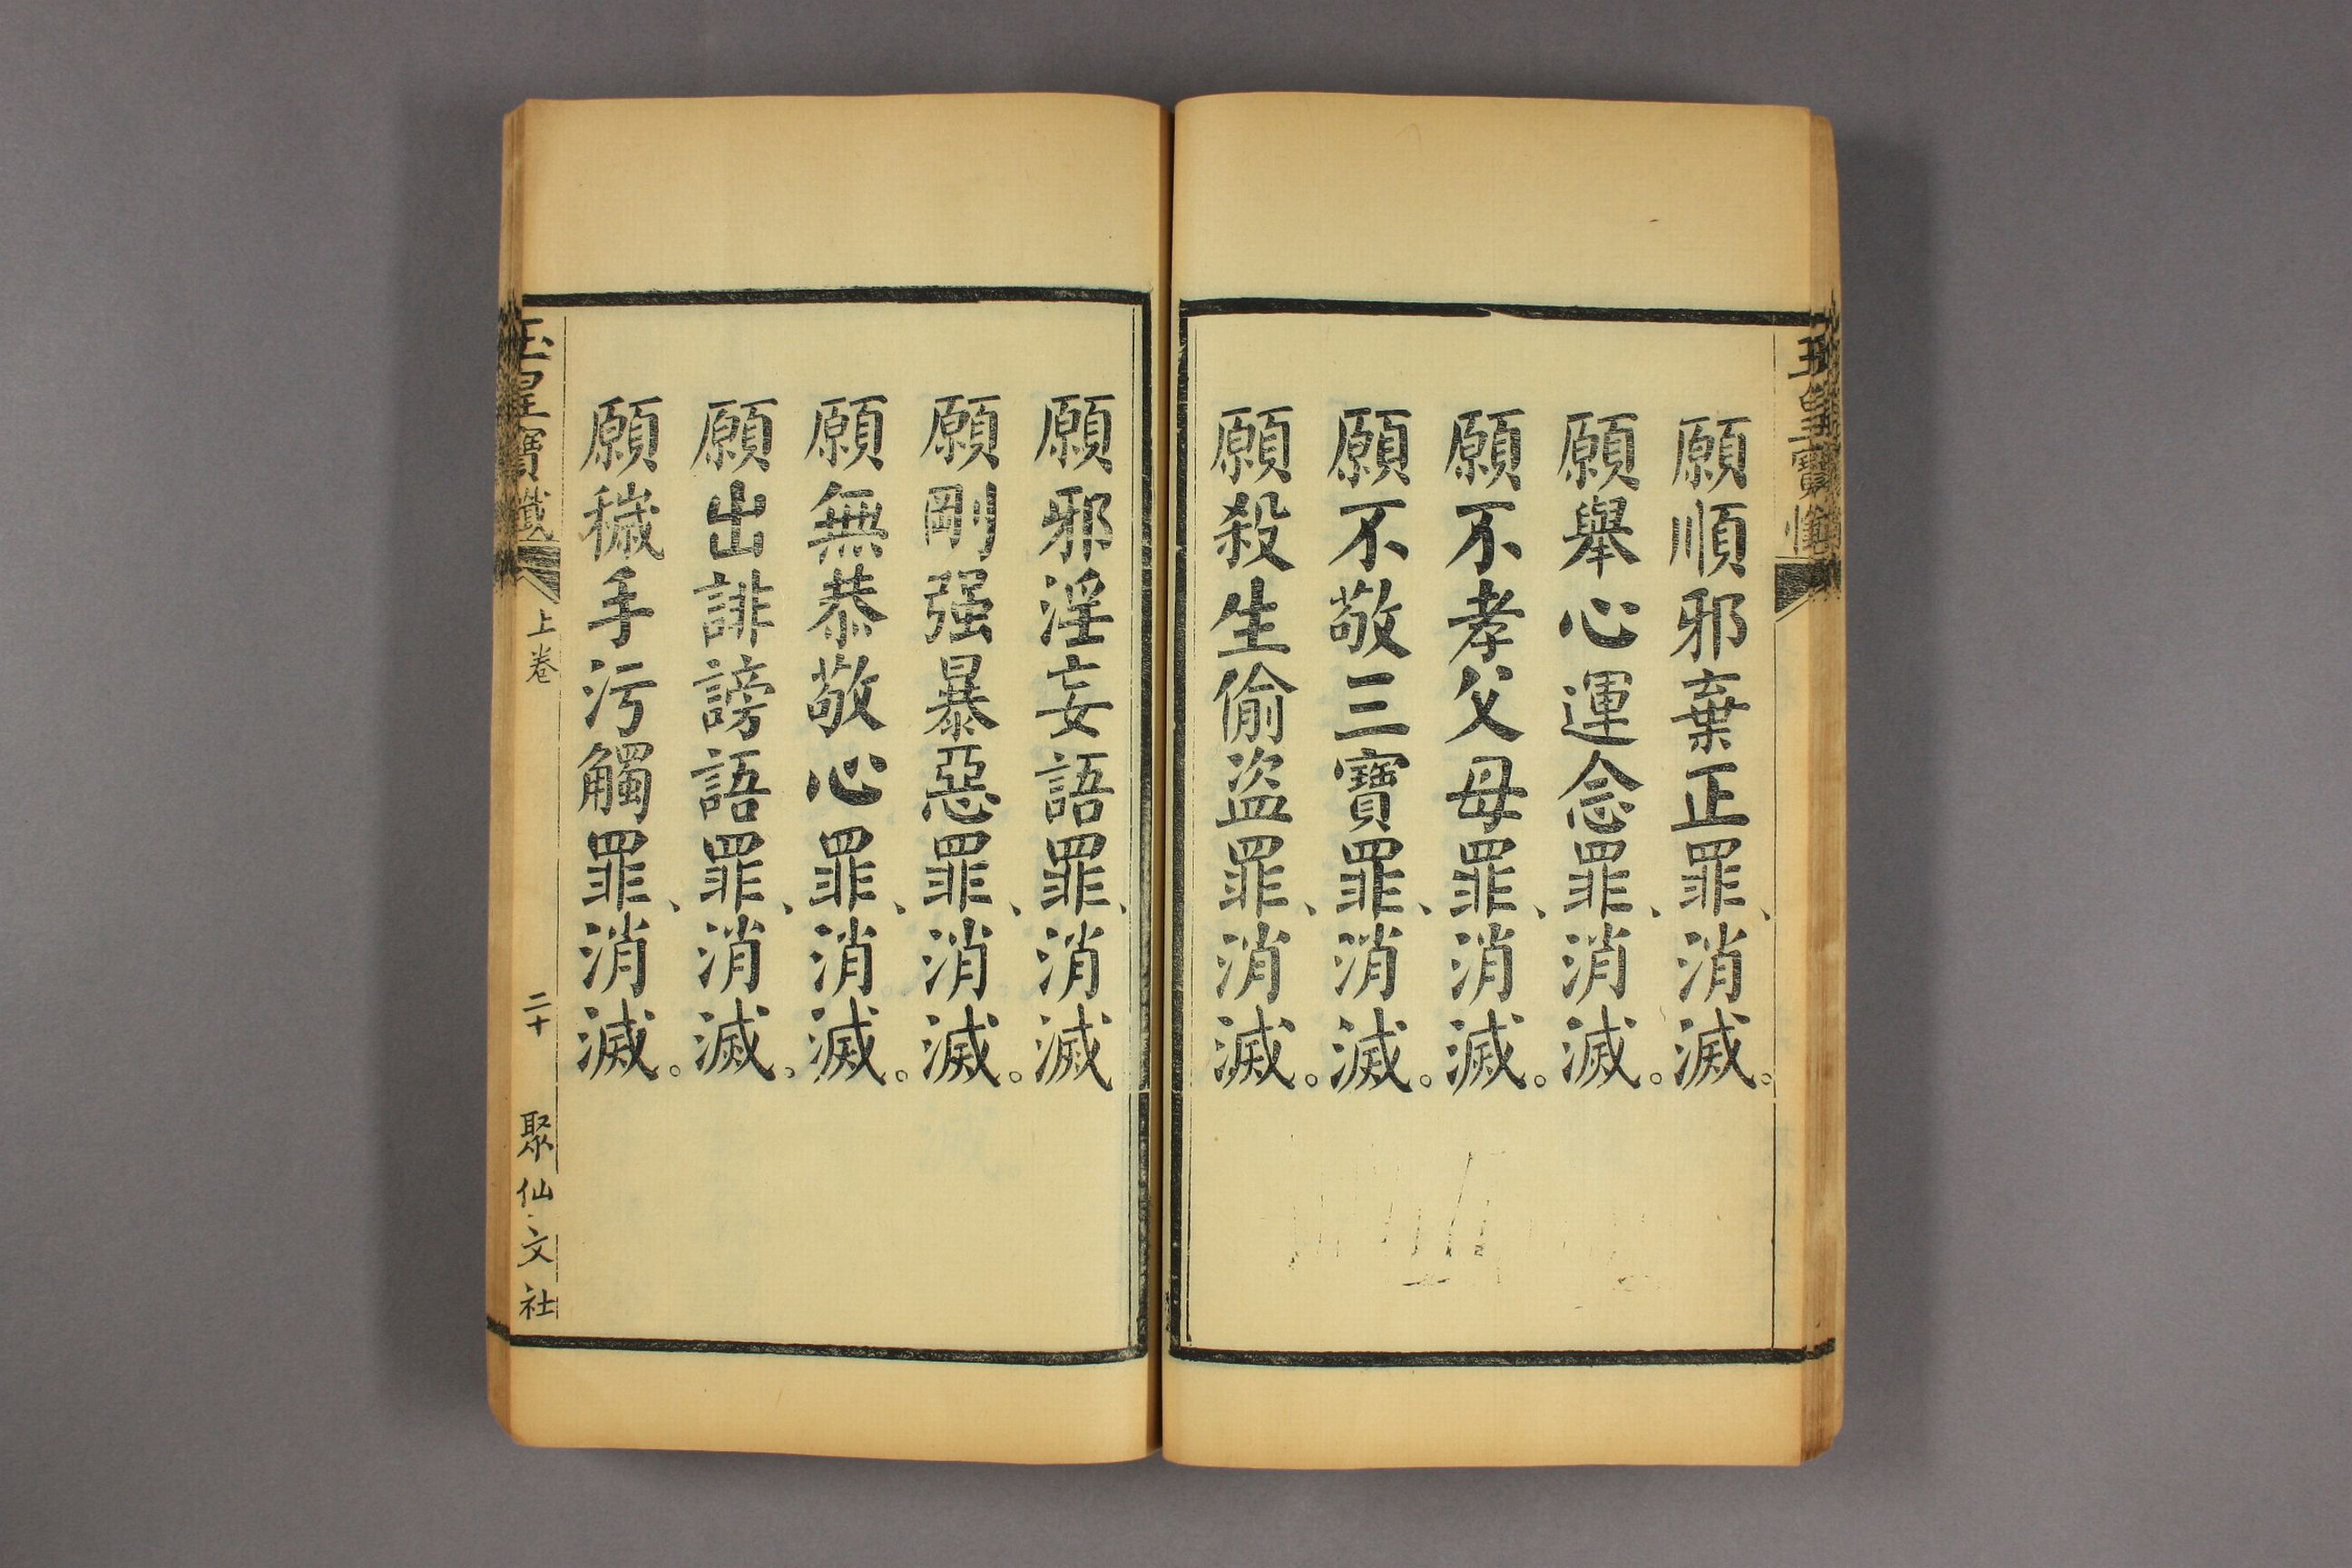 玉皇寶懺
願順邪棄正罪、消滅。
願舉心運念罪、消滅。
願不孝父母罪、消滅。
願不敬三寶罪、消滅。
願殺生偷盜罪、消滅。
願邪淫妄語罪、消滅
願剛强暴惡罪、消滅。
願無恭敬心罪、消滅。
願出誹謗語罪、消滅、
願穢手污觸罪、消滅。
玉皇寶懺 上卷 二十 聚仙文社